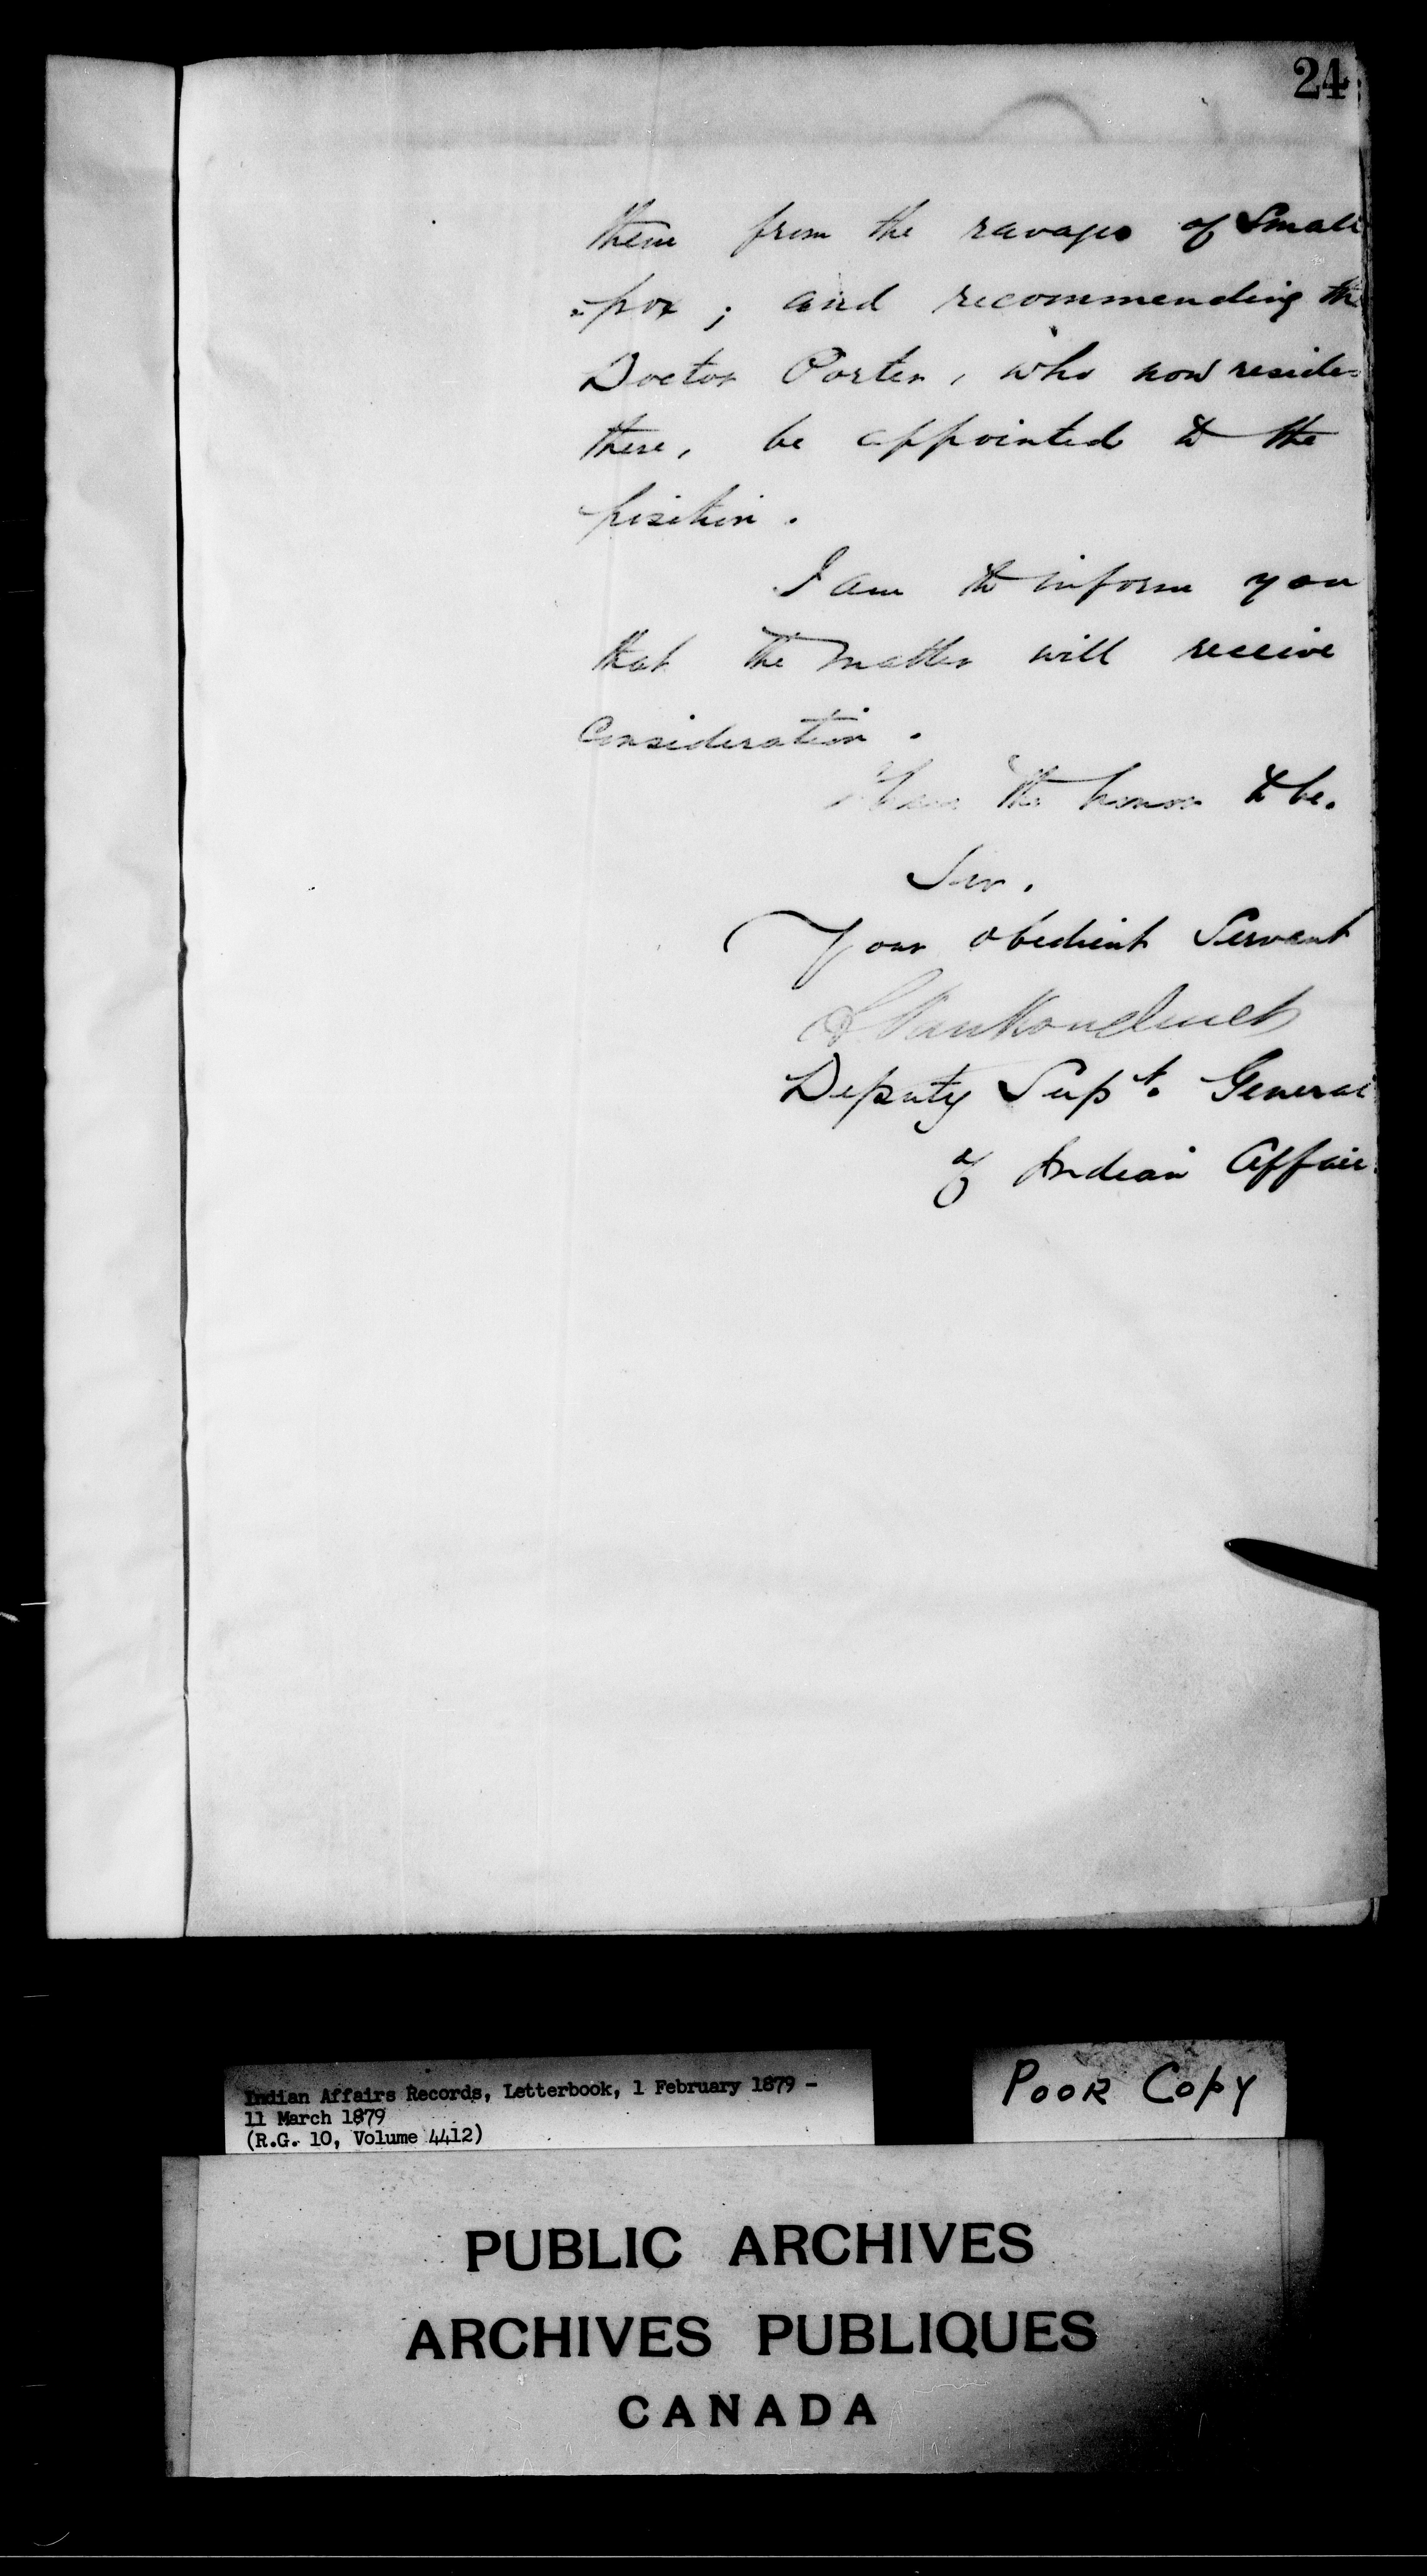 24
them from the ravages of Small
=pox ; and recommending th
Doctor Porter, who now reside
there, be appointed to the
position.
I am to inform you
that the matter will receive
consideration.
I have the honor to be.
Sir.
Your obedient Servant
L VanKoughnet
Deputy Supt. General
of Indian Affair
Indian Affairs Records, Letterbook, 1 February 1879 -
11 March 1879
(R.G. 10, Volume 4412)
POOR COPY
PUBLIC ARCHIVES
ARCHIVES PUBLIQUES
CANADA